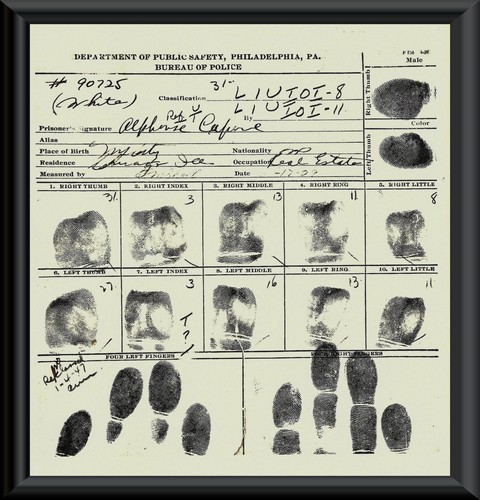 DEPARTMENT OF PUBLIC SAFETY, PHILADELPHIA, PA.
BUREAU OF POLICE
Male
# 90725
(White)
Classification 31 L 1 U IOI-8
L 1 U IOI-11
Ref U T By
Right Thumb
Prisoner's Signature Alphonse Capone
Color
Alias
Left Thumb
Place of Birth Nationality
Residence Chicago Ills Occupation Real Estate
Measured by Date -17-29
1. RIGHT THUMB 2. RIGHT INDEX 3. RIGHT MIDDLE 4. RIGHT RING 5. RIGHT LITTLE
31 3 13 11 8
6. LEFT THUMB 7. LEFT INDEX 8. LEFT MIDDLE 9. LEFT RING 10. LEFT LITTLE
27 3 16 13 11
T
?
FOUR LEFT FINGERS FOUR RIGHT FINGERS
1-4-47